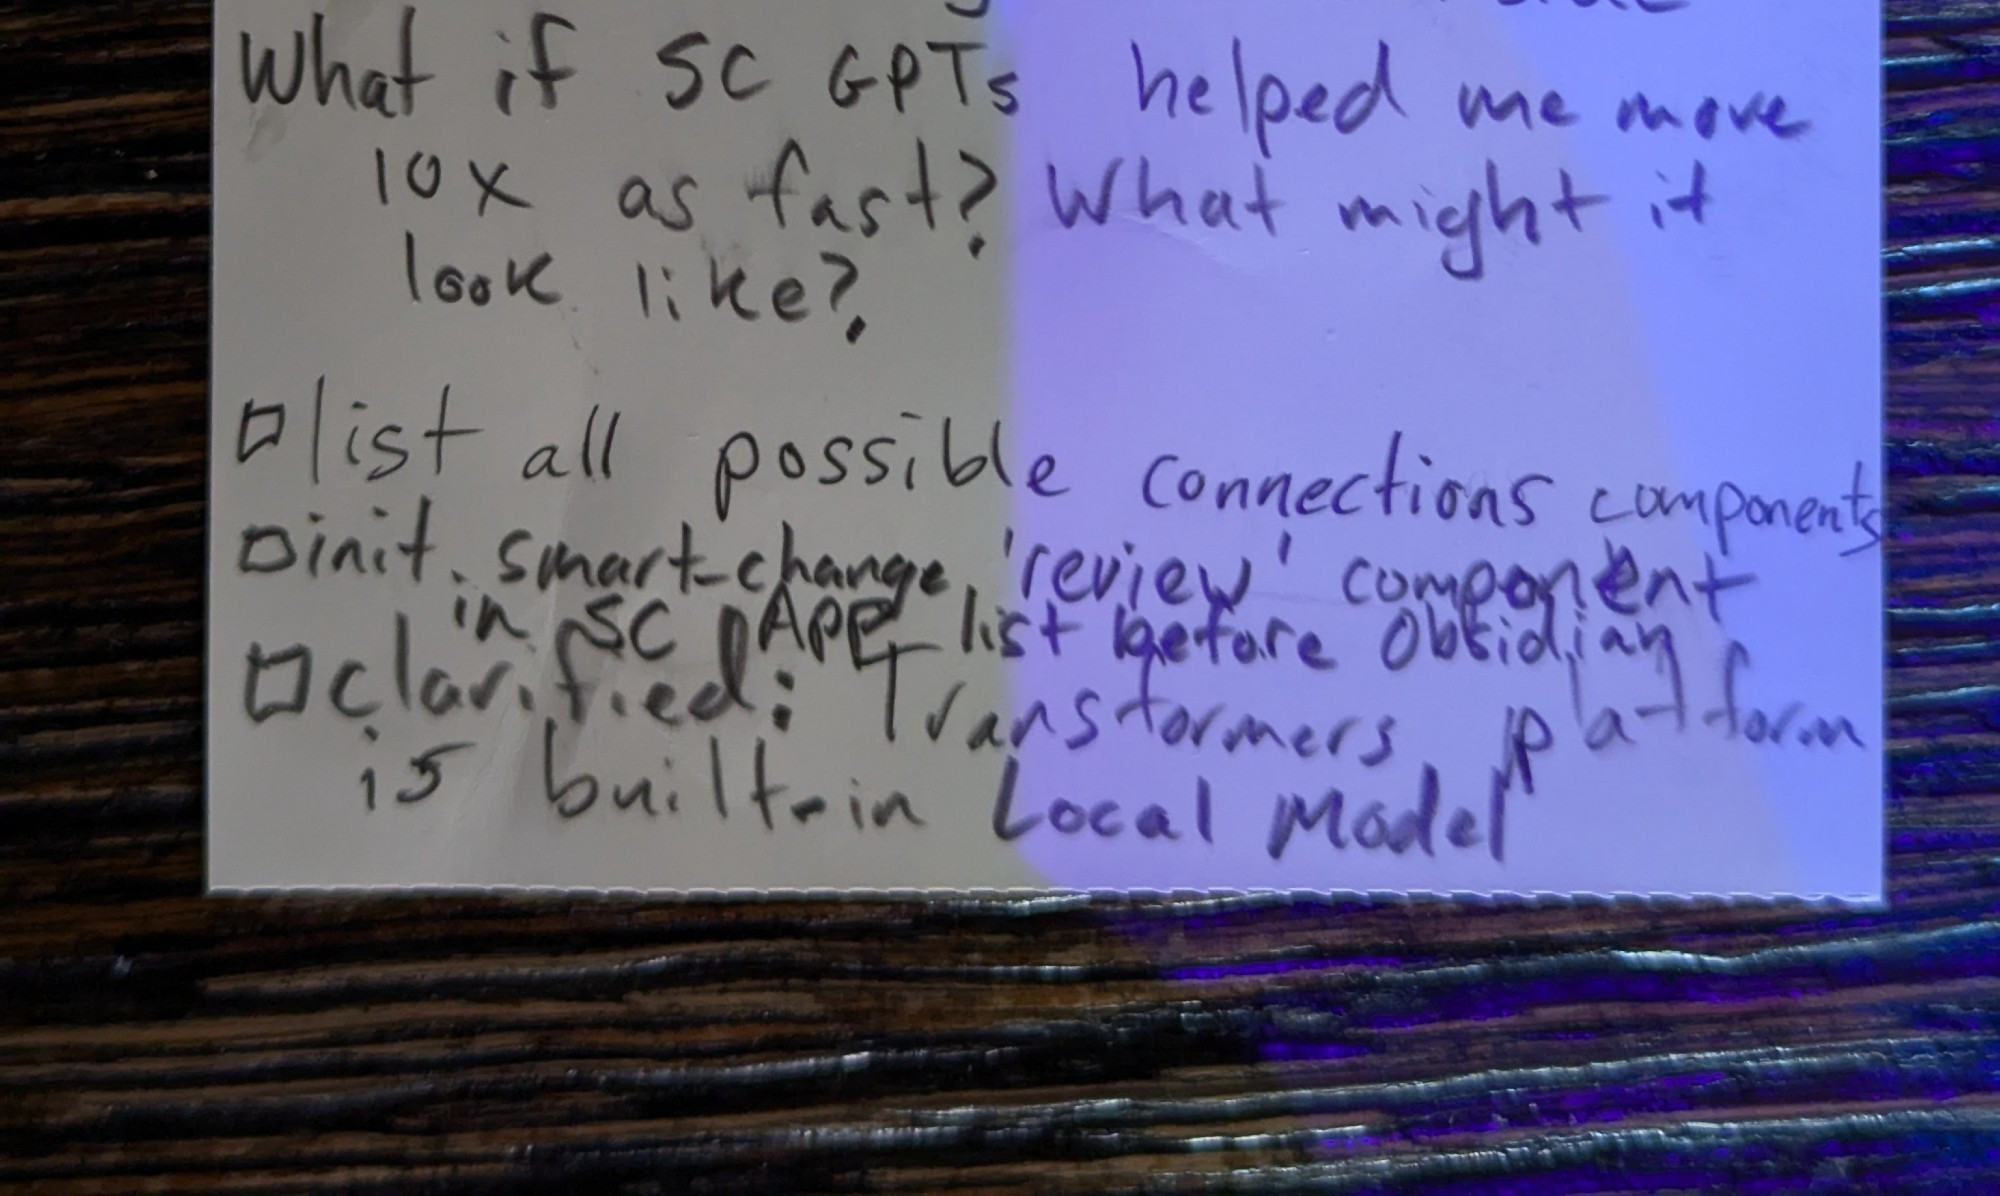 What if SC GPTs helped me move
10x as fast? What might it
look like?
□ list all possible connections components
□ init. smart-change 'review' component
in SC APP list before Obsidian
□ clarified: Transformers platform
is built-in Local Model